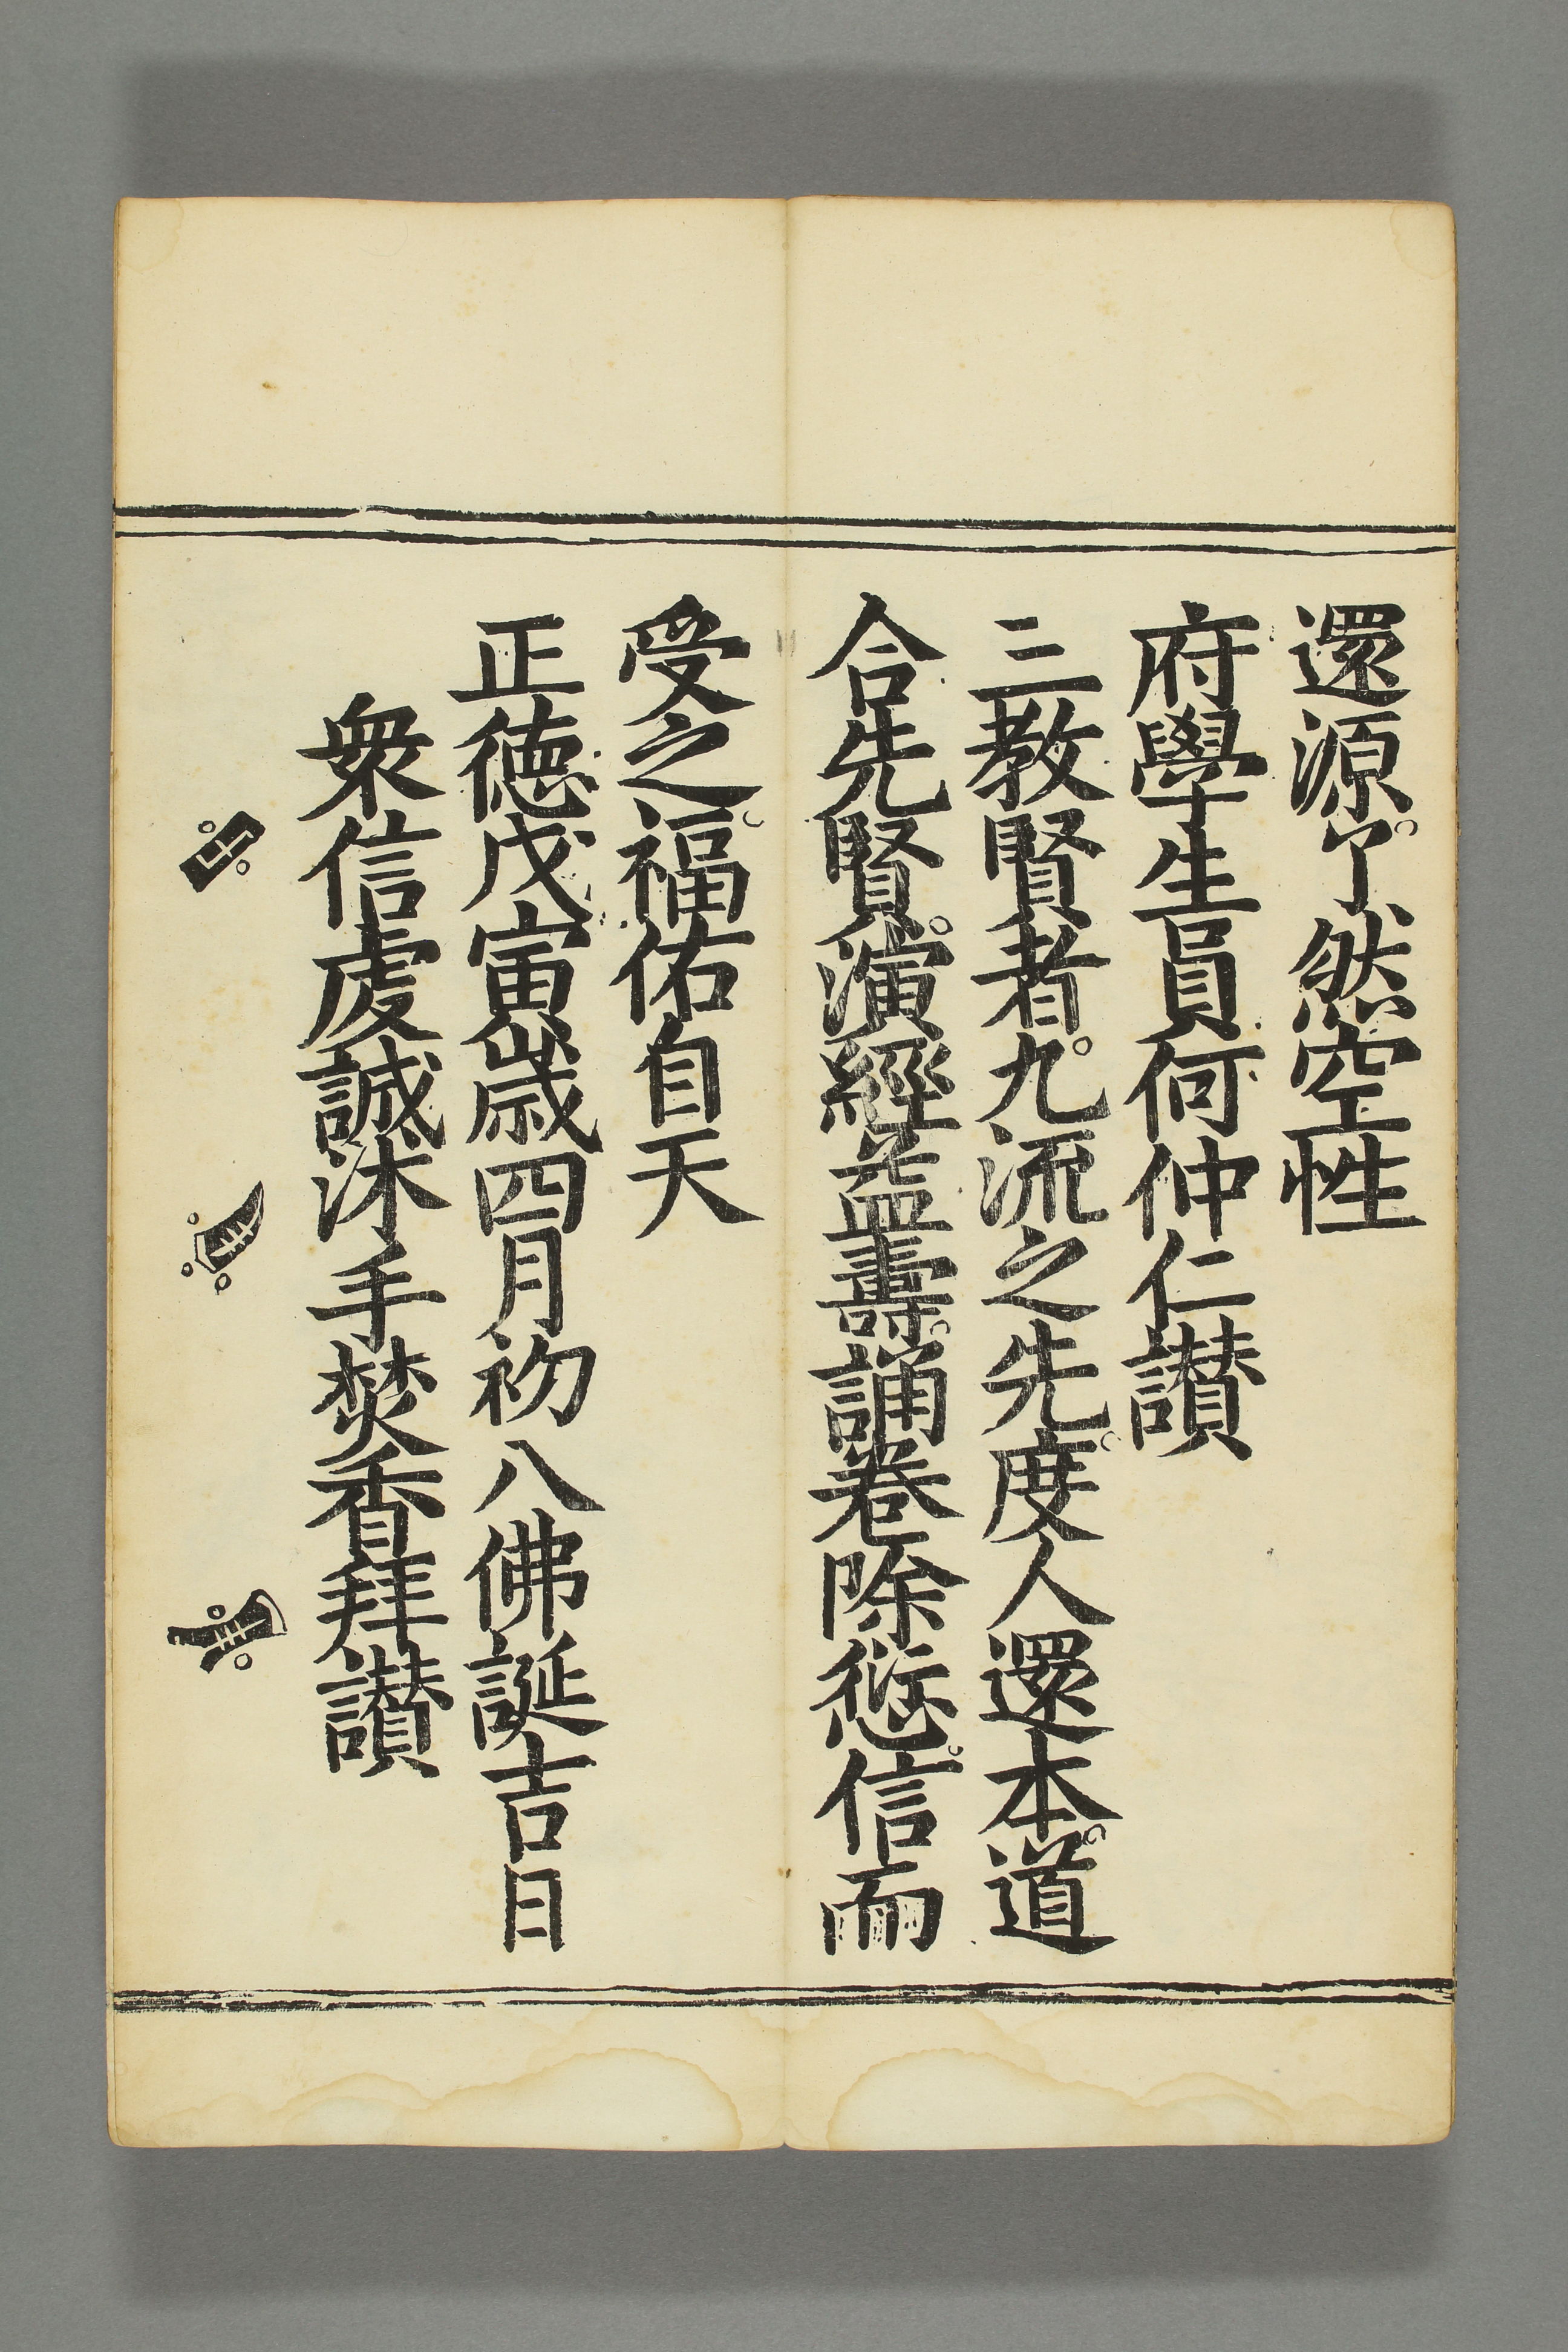 還源。了然空性
府學生員何仲仁讃
三教賢者。九流之先。度人還本。道
合先賢。演經益壽。誦卷除愆。信而
受之。福佑自天
正德戊寅歲四月初八佛誕吉日
衆信虔誠沐手焚香拜讃